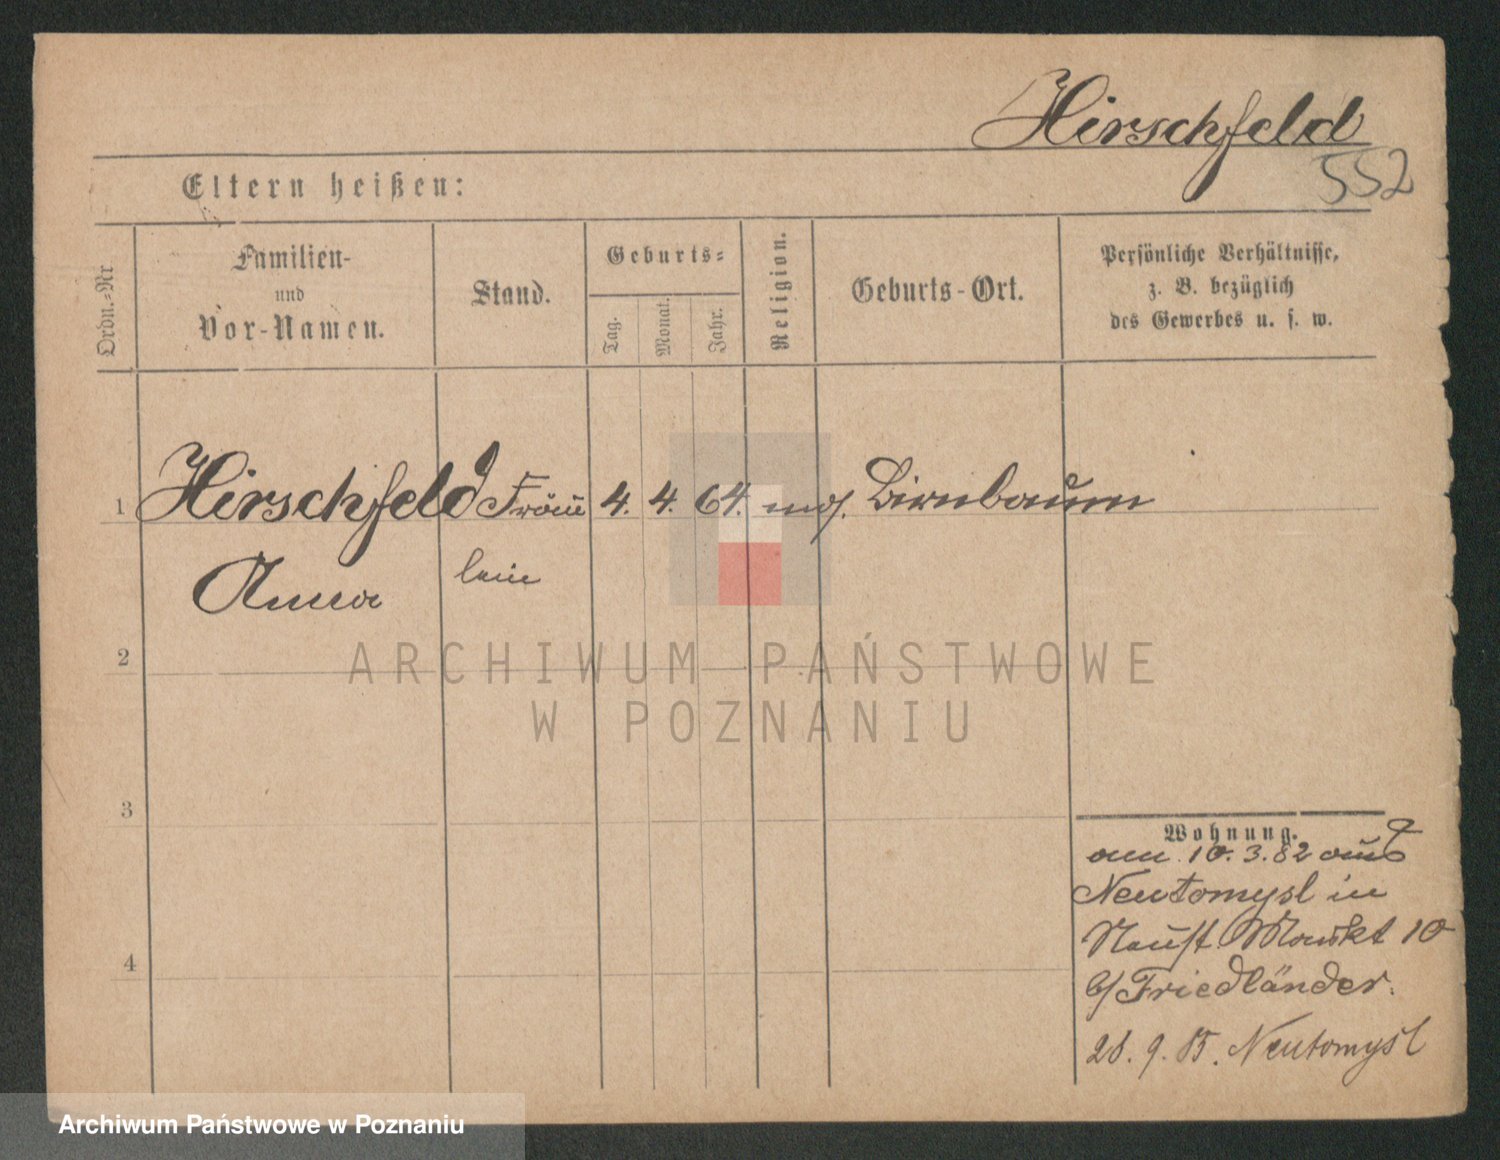 Hirschfeld
552
Eltern heißen:
Ordn.=Nr
Familien-
und
Vor-Namen.
Stand.
Geburts=
Tag.
Monat.
Jahr.
Religion.
Geburts-Ort.
Persönliche Verhältnisse,
z. B. bezüglich
des Gewerbes u. s. w.
1 Hirschfeld Fräu 4. 4. 64. mos. Birnbaum
Anna lein
2
3
4
Wohnung.
am 10.3.82 aus
Neutomysl in
Neust. Markt 10
b/ Friedländer.
28. 9. 85. Neutomysl
ARCHIWUM PAŃSTWOWE
W POZNANIU
Archiwum Państwowe w Poznaniu